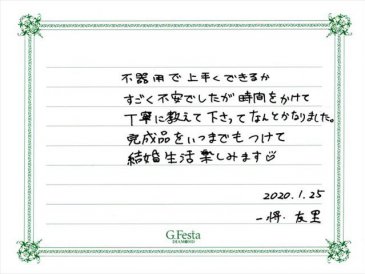 不器用で上手くできるか
すごく不安でしたが時間をかけて
丁寧に教えて下さってなんとかなりました。
完成品をいつまでもつけて
結婚生活楽しみます
2020.1.25
一将・友里
G.Festa
DIAMOND